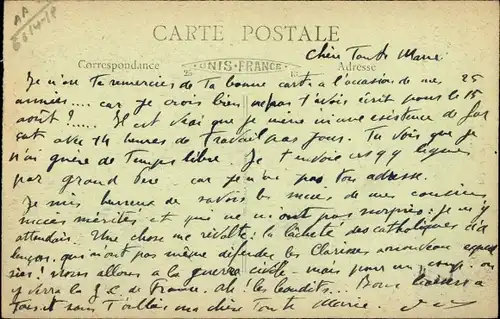 AA
6614-18
CARTE POSTALE
Chère Tante Marie
Correspondance
UNIS-FRANCE
Adresse
Je n'ose te remercier de ta bonne carte à l'occasion de mes 25
années.... car je crois bien ne pas t'avoir écrit pour le 15
août?..... Il est vrai que je mène une existence de for
çat avec 14 heures de travail par jour. Tu vois que je
n'ai guère de temps libre. Je t'envoie ces qq lignes
par grand car je n'ai pas ton adresse.
Je suis heureux de savoir les succès de mes cousins
succès mérités et qui ne m'ont pas surpris: je m'y
attendais. Une chose me révolte: la lâcheté des catholiques d'a
lençon, qui n'ont pas même défendu les Clarisses à nouveau expul
sées! Nous allons à la guerre civile - mais pour un coup, on
y verra la J.C. de France. Ah! les bandits... Bons baisers à
tous et sans t'oublier ma chère Tante Marie.